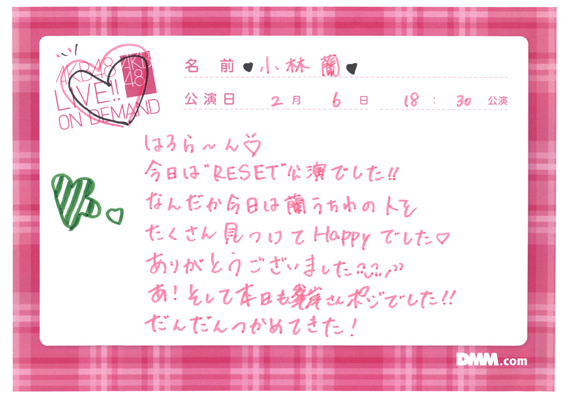 AKB48
LIVE!!
ON DEMAND
AKB
48
名 前 ♥小林 蘭♥
公演日 2 月 6 日 18 : 30 公演
はろら〜ん♡
今日は"RESET"公演でした!!
なんだか今日は蘭うちわの人を
たくさん見つけてHappyでした♡
ありがとうございました
あ!そして本日も峯岸さんポジでした!!
だんだんつかめてきた!
DMM.com